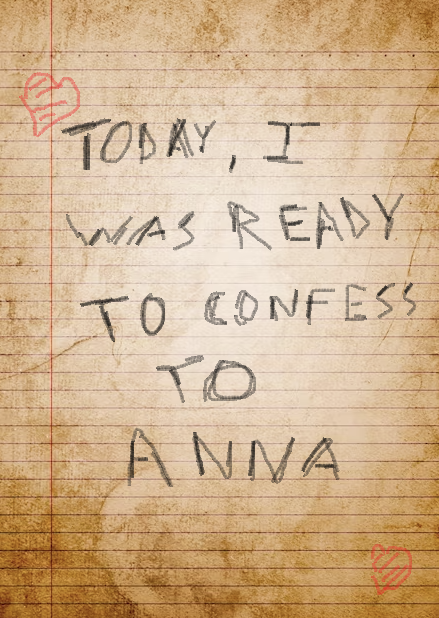 TODAY, I
WAS READY
TO CONFESS
TO
ANNA